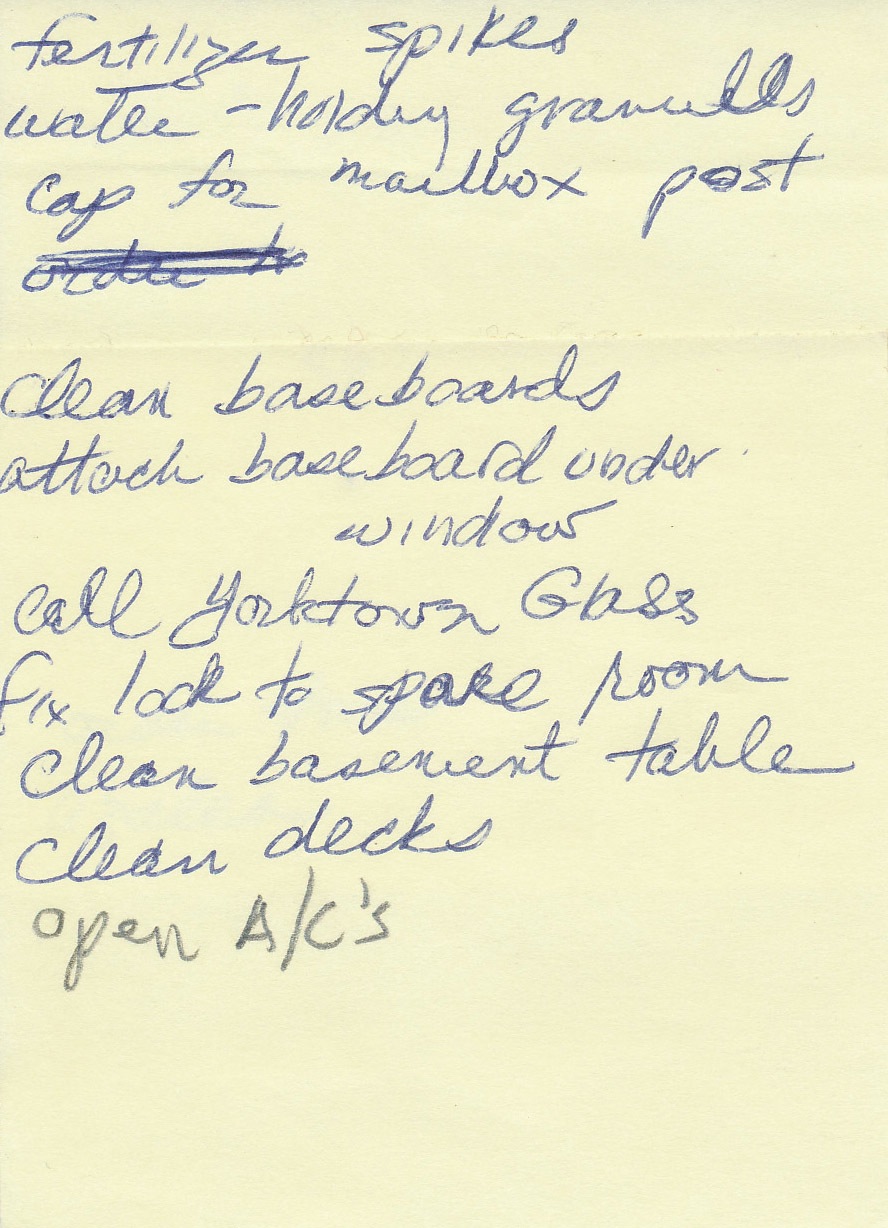 fertilizer spikes
water-holding granulls
cap for mailbox post
order
Clean baseboards
attach baseboard under
window
Call Yorktown Glass
fix lock to spare room
Clean basement table
Clean decks
open A/C's